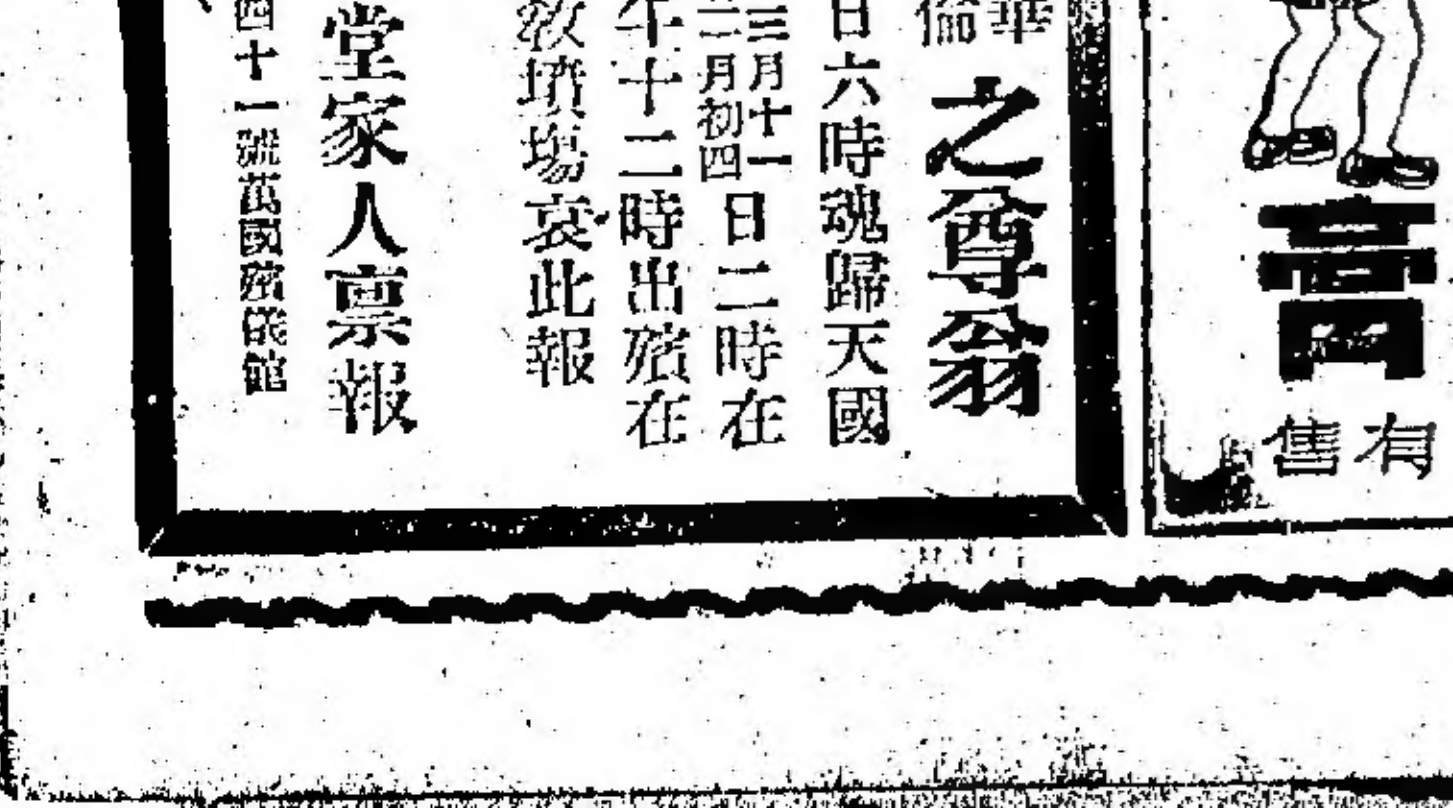 有售
華
倫
之尊翁
日六時魂歸天國
三月十一
二月初四
日二時在
午十二時出殯在
教墳場哀此報
堂家人禀報
四十一號萬國殯儀館